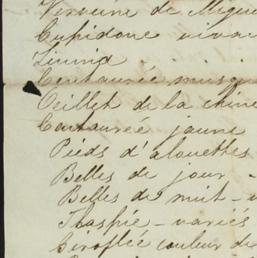 Verveine de Mique
Cupidone viva
Zinnia
Centaurée musq
Oeillet de la chine
Centaureé jaune
Pieds d'alouettes
Belles de jour -
Belles de nuit - v
Thaspié - variés
Giroflée couleur de